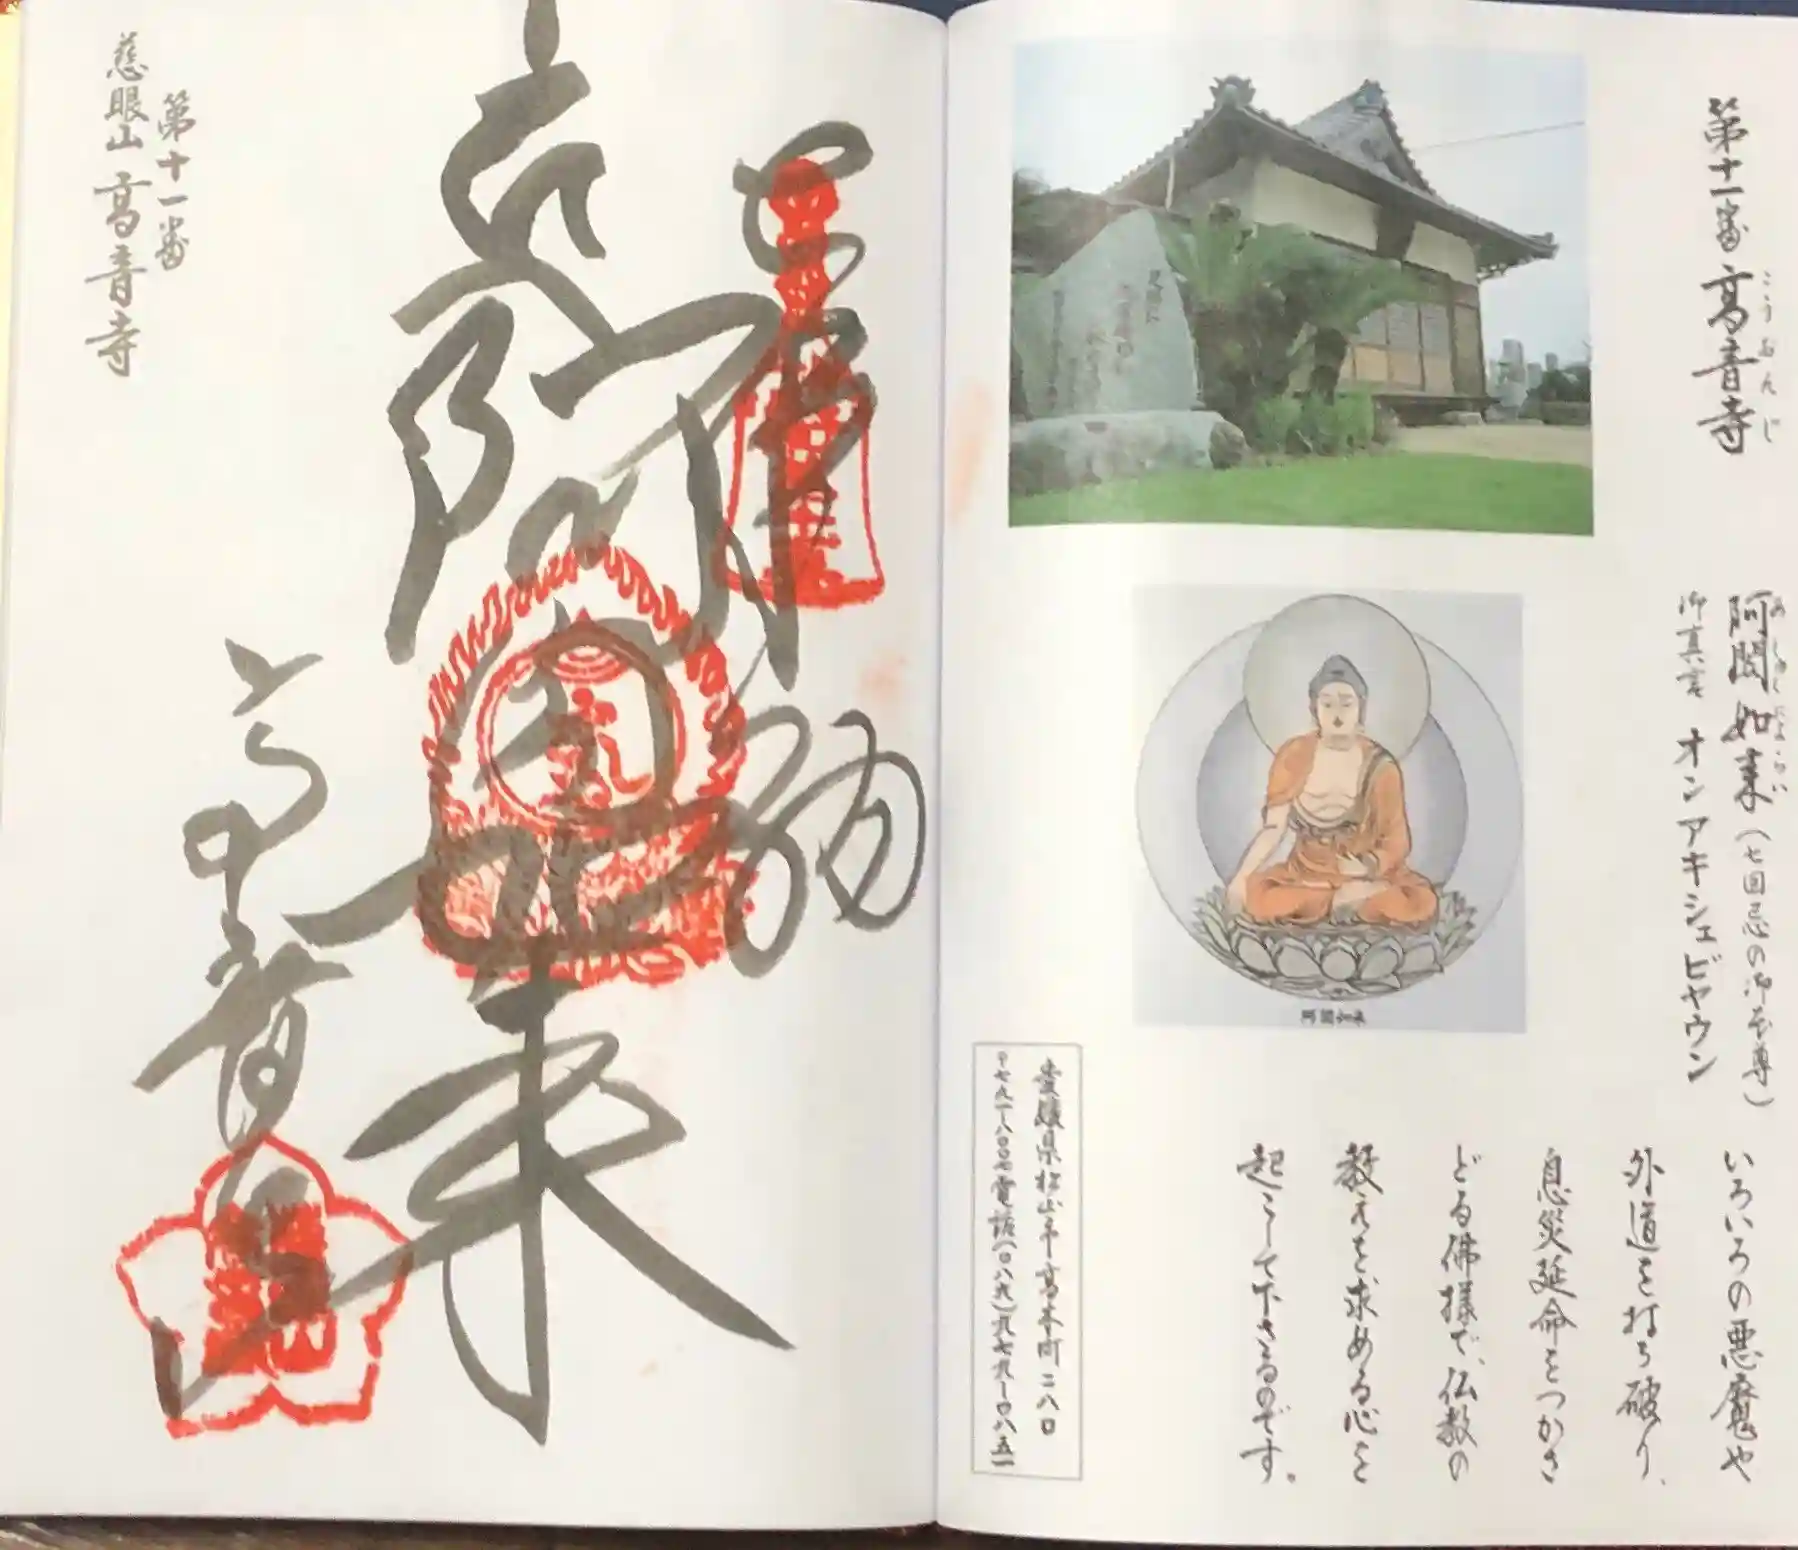 第十一番 高音寺
こうおんじ
阿閦如来(七回忌の御本尊)
あしゅくにょらい
御真言 オンアキシュビヤウン
いろいろの悪魔や
外道を打ち破り、
息災延命をつかさ
どる佛様で、仏教の
教えを求める心を
起こして下さるのです。
愛媛県松山市高木町二八〇
〒七九一-八〇〇七電話(〇八九)九七九-〇八五一
阿閦如来
奉納
阿
如来
高音寺
第十一番
慈眼山 高音寺